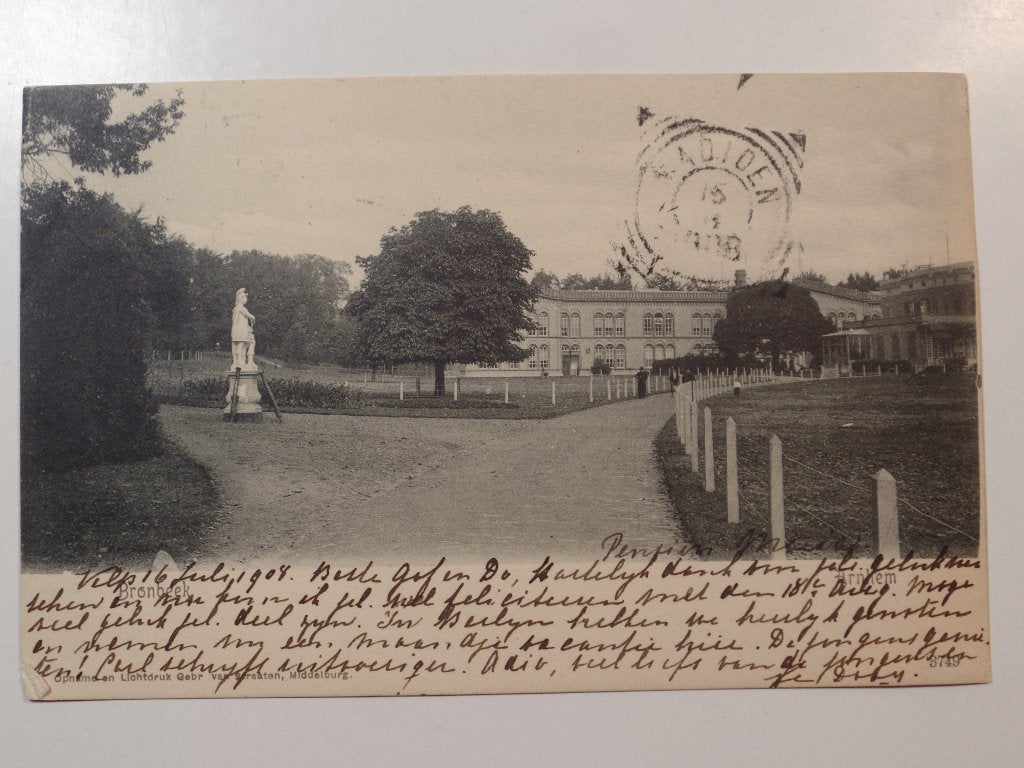 MADIOEN
15
1908
Pension
Velp 16 Juli, 1908. Beste Gof en Do, Hartelijk dank voor jul. geluk wen
schen en
jul. wel feliciteeren met den 18n Aug. Moge
veel geluk jul. deel zyn. In Berlyn hebben we heerlyk genoten
en nemen nu een maandje vacantie hier. De jongens genie
ten! Carl schryft uitvoeriger. Adio, veel liefs van de jongens en
je Dora.
Bronbeek
Arnhem
Opname en Lichtdruk Gebr van Straaten, Middelburg.
3749